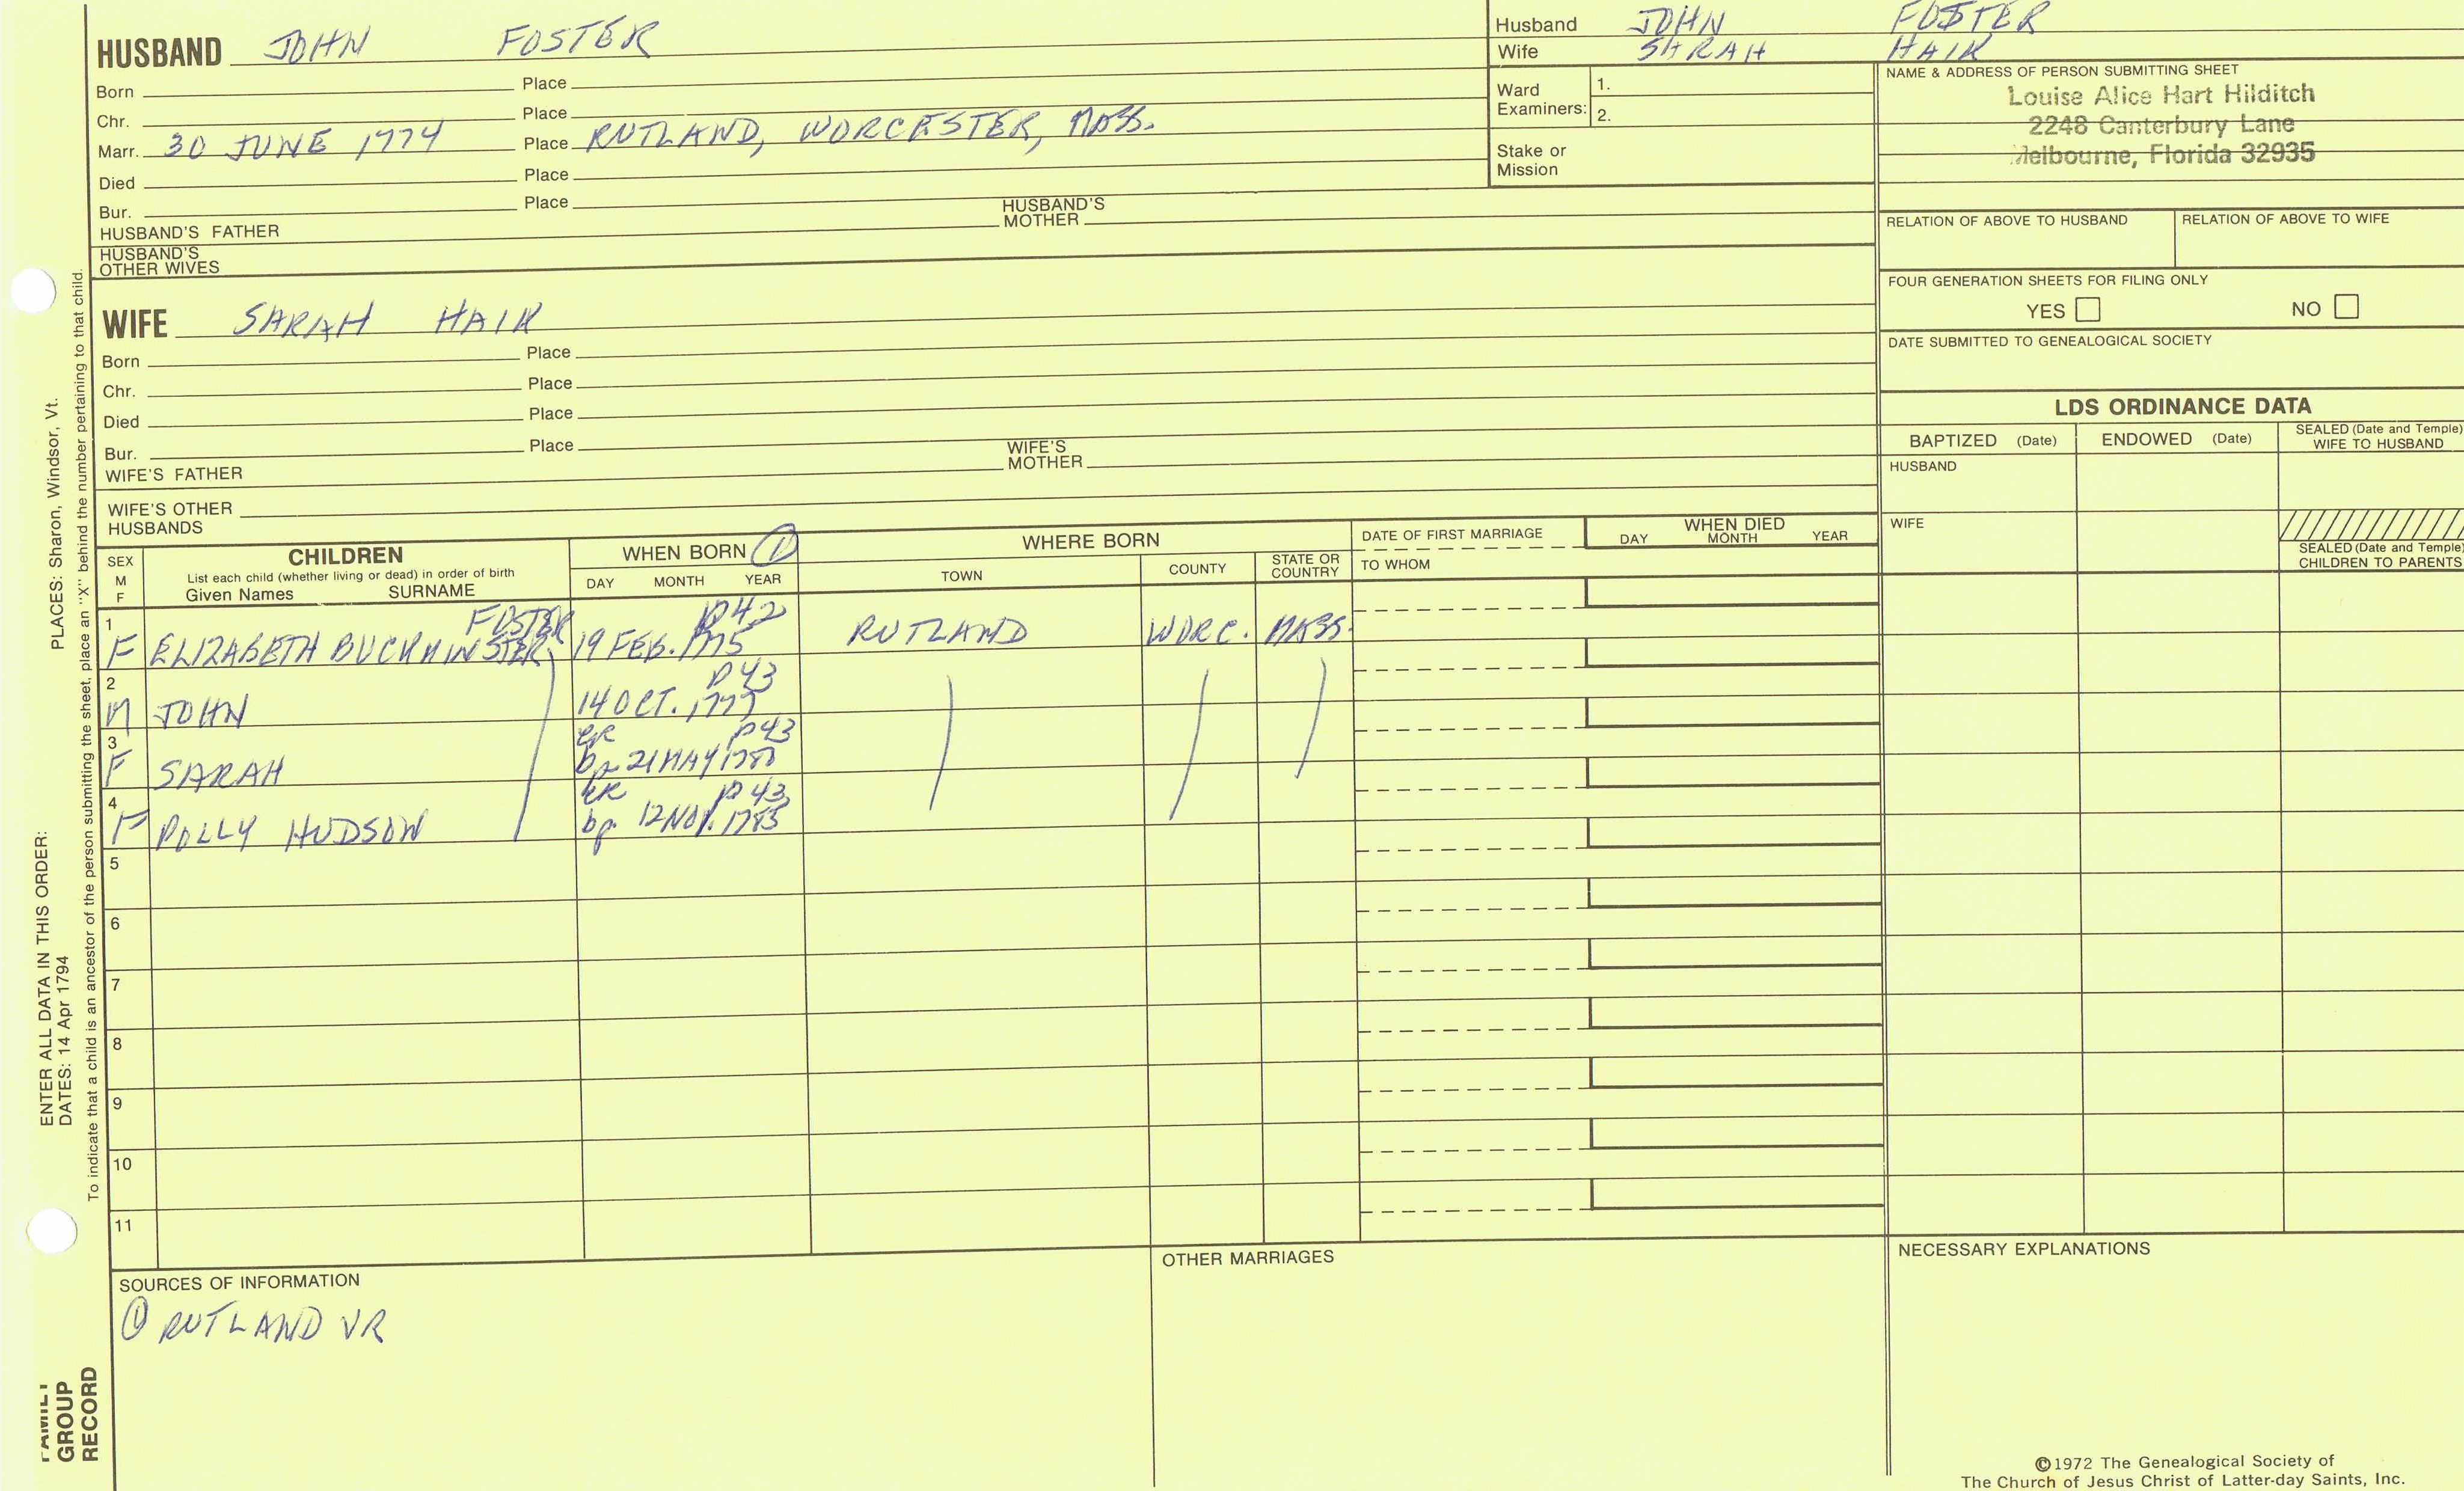 HUSBAND JOHN FOSTER
Born Place
Chr. Place
Marr. 30 JUNE 1774 Place RUTLAND, WORCESTER, MASS.
Died Place
Bur. Place
HUSBAND'S FATHER HUSBAND'S MOTHER
HUSBAND'S OTHER WIVES
Husband JOHN FOSTER
Wife SARAH HAIR
Ward Examiners: 1.
2.
Stake or Mission
NAME & ADDRESS OF PERSON SUBMITTING SHEET
Louise Alice Hart Hilditch
2248 Canterbury Lane
Melbourne, Florida 32935
RELATION OF ABOVE TO HUSBAND RELATION OF ABOVE TO WIFE
FOUR GENERATION SHEETS FOR FILING ONLY
YES NO
DATE SUBMITTED TO GENEALOGICAL SOCIETY
WIFE SARAH HAIR
Born Place
Chr. Place
Died Place
Bur. Place
WIFE'S FATHER WIFE'S MOTHER
WIFE'S OTHER HUSBANDS
LDS ORDINANCE DATA
BAPTIZED (Date) ENDOWED (Date) SEALED (Date and Temple) WIFE TO HUSBAND
HUSBAND
WIFE
SEALED (Date and Temple) CHILDREN TO PARENTS
SEX M F
CHILDREN
List each child (whether living or dead) in order of birth
Given Names SURNAME
WHEN BORN ①
DAY MONTH YEAR
WHERE BORN
TOWN COUNTY STATE OR COUNTRY
DATE OF FIRST MARRIAGE
TO WHOM
WHEN DIED
DAY MONTH YEAR
1 FOSTER p42
F ELIZABETH BUCKMINSTER 19 FEB. 1775 RUTLAND WORC. MASS.
2 p43
M JOHN 14 OCT. 1777
3 CR p43
F SARAH bp 21 MAY 1780
4 CR p43
F POLLY HUDSON bp. 12 NOV. 1783
5
6
7
8
9
10
11
SOURCES OF INFORMATION
① RUTLAND VR
OTHER MARRIAGES
NECESSARY EXPLANATIONS
©1972 The Genealogical Society of
The Church of Jesus Christ of Latter-day Saints, Inc.
PLACES: Sharon, Windsor, Vt.
ENTER ALL DATA IN THIS ORDER:
DATES: 14 Apr 1794
To indicate that a child is an ancestor of the person submitting the sheet, place an "X" behind the number pertaining to that child.
FAMILY
GROUP
RECORD